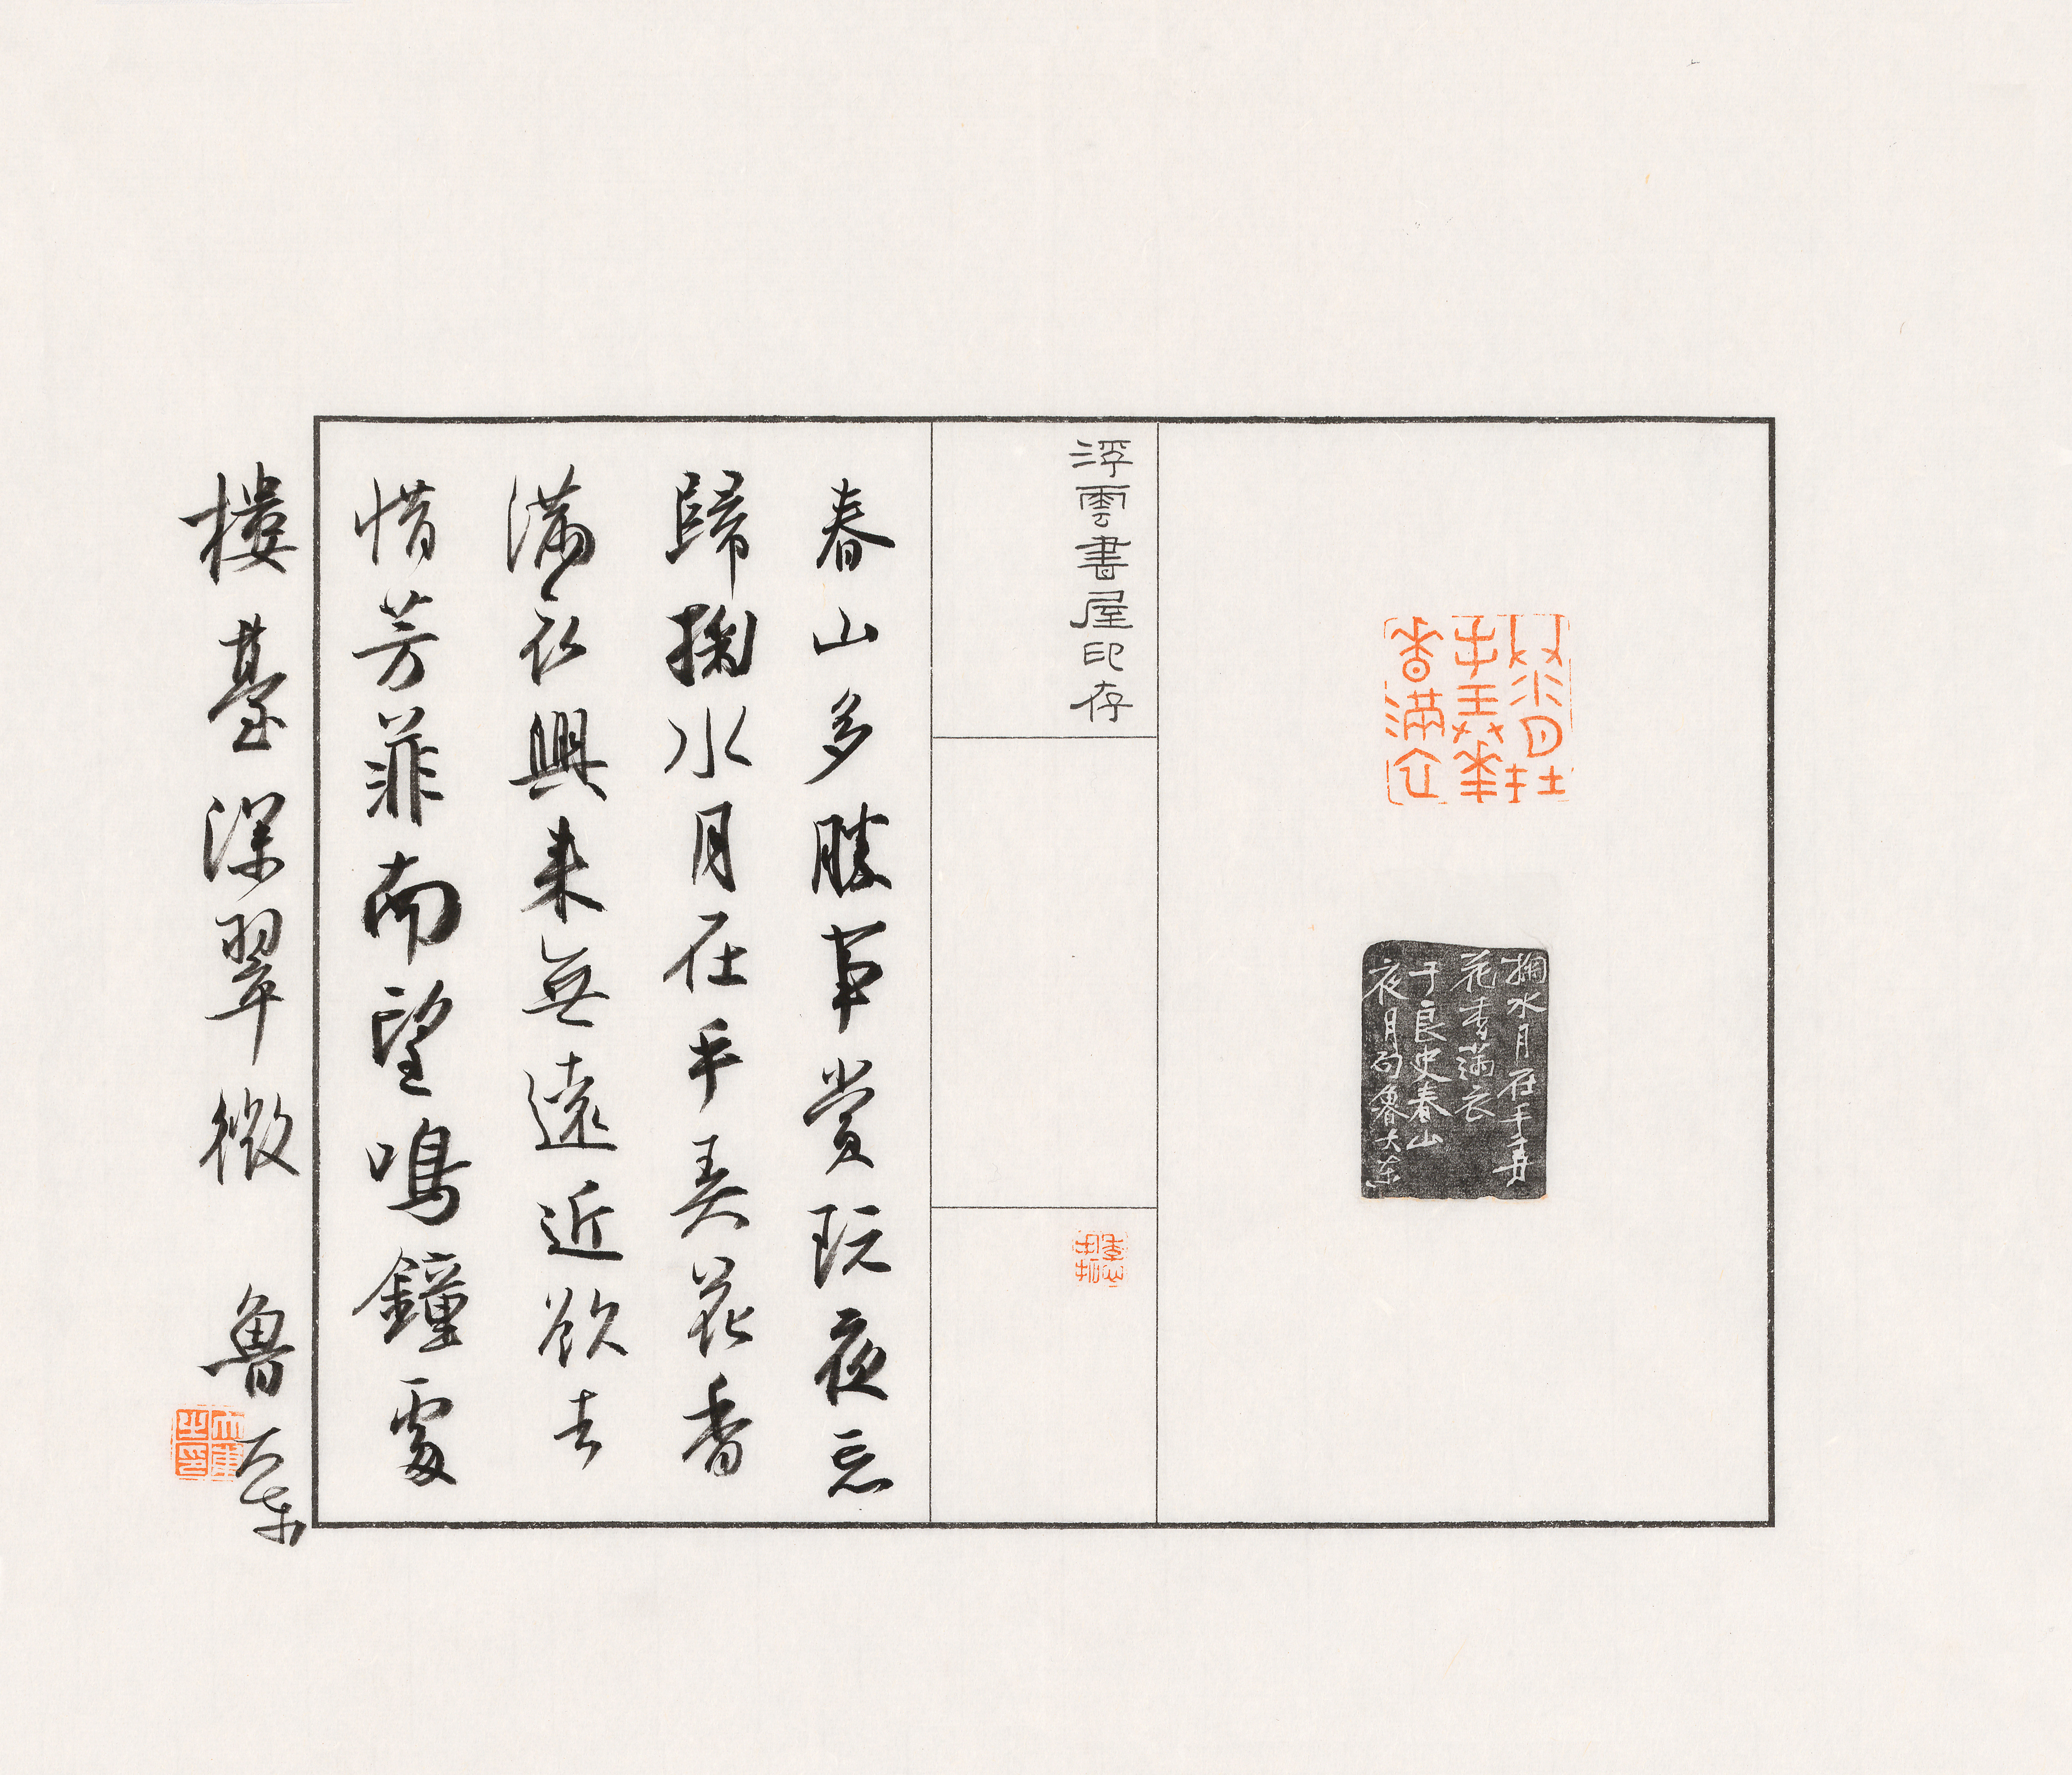 掬水月在
手弄華
香滿衣
掬水月在手弄
花香滿衣
于良史春山
夜月句魯大東
浮雲書屋印存
春山多勝事賞玩夜忘
歸掬水月在手弄花香
滿衣興來無遠近欲去
惜芳菲南望鳴鐘處
樓臺深翠微 魯大東
大東之印